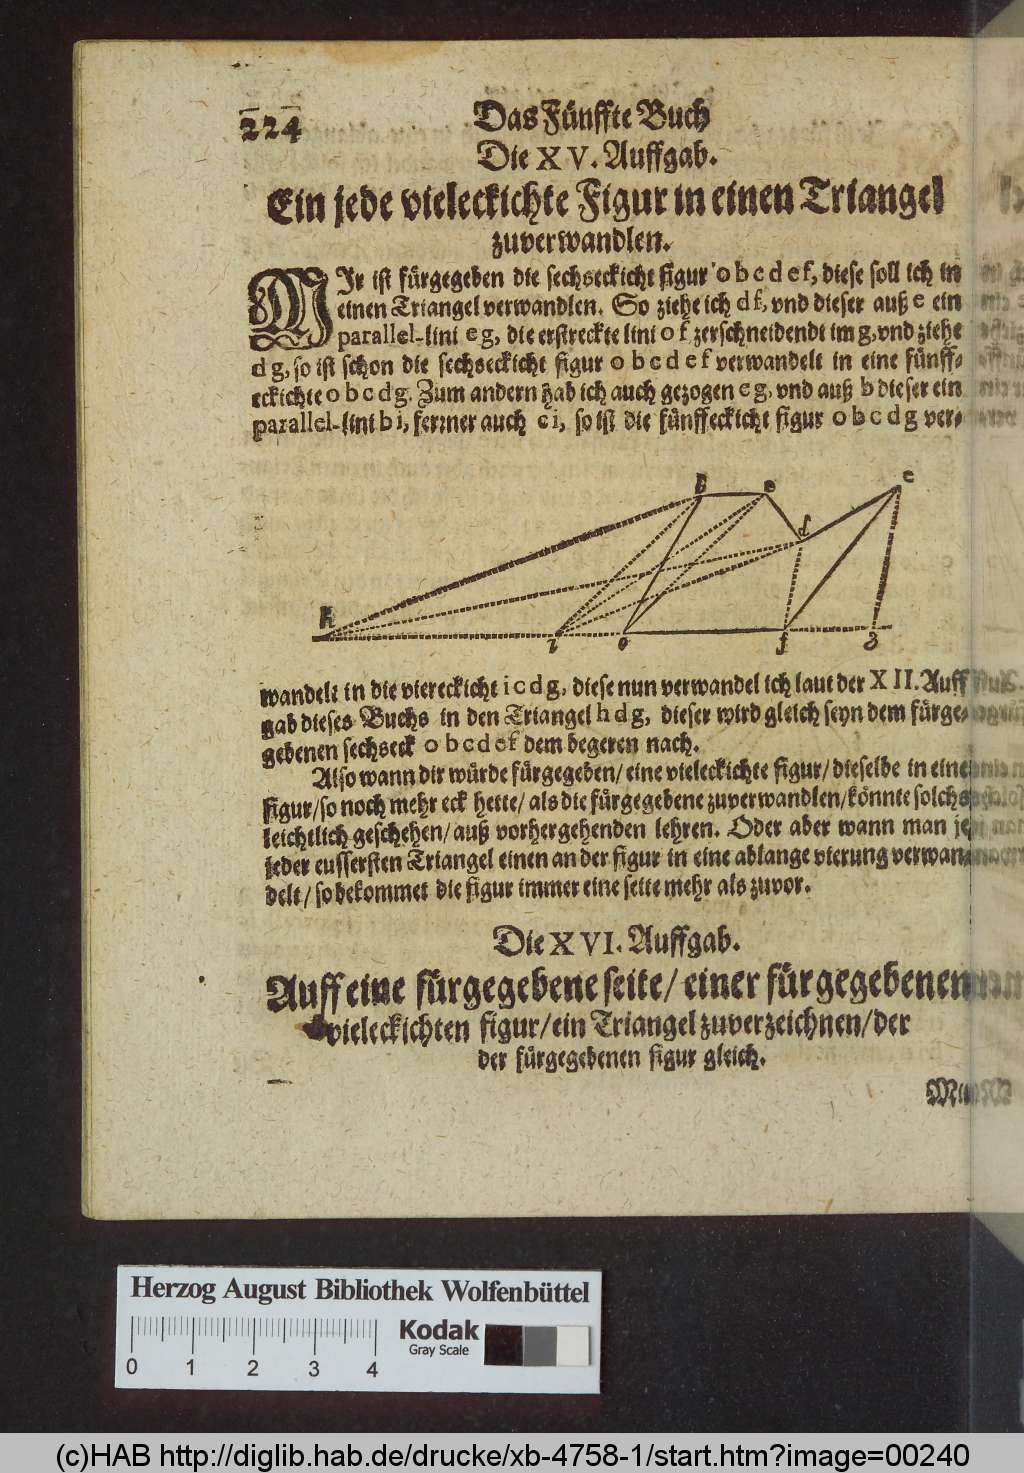 224
Das Fünffte Buch
Die XV. Auffgab.
Ein jede vieleckichte Figur in einen Triangel
zuverwandlen.
MIr ist fürgegeben die sechseckicht figur o b c d e f, diese soll ich in
einen Triangel verwandlen. So ziehe ich d f, vnd dieser auß e ein
parallel-lini e g, die erstreckte lini o f zerschneidendt im g, vnd ziehe
d g, so ist schon die sechseckicht figur o b c d e f verwandelt in eine fünff-
eckichte o b c d g. Zum andern hab ich auch gezogen e g, vnd auß b dieser ein
parallel-lini b i, ferrner auch c i, so ist die fünffeckicht figur o b c d g ver-
b e d e
h i o f g
wandelt in die viereckicht i c d g, diese nun verwandel ich laut der XII. Auff
gab dieses Buchs in den Triangel h d g, dieser wird gleich seyn dem fürge-
gebenen sechseck o b c d e f dem begeren nach.
Also wann dir würde fürgegeben/ eine vieleckichte figur/ dieselbe in eine
figur/ so noch mehr eck hette/ als die fürgegebene zuverwandlen/ könnte solchs
leichtlich geschehen/ auß vorhergehenden lehren. Oder aber wann man je
jeder eussersten Triangel einen an der figur in eine ablange vierung verwan-
delt/ so bekommet die figur immer eine seite mehr als zuvor.
Die XVI. Auffgab.
Auff eine fürgegebene seite/ einer fürgegebenen
vieleckichten figur/ ein Triangel zuverzeichnen/ der
der fürgegebenen figur gleich.
Herzog August Bibliothek Wolfenbüttel
0 1 2 3 4
Kodak
Gray Scale
(c)HAB http://diglib.hab.de/drucke/xb-4758-1/start.htm?image=00240